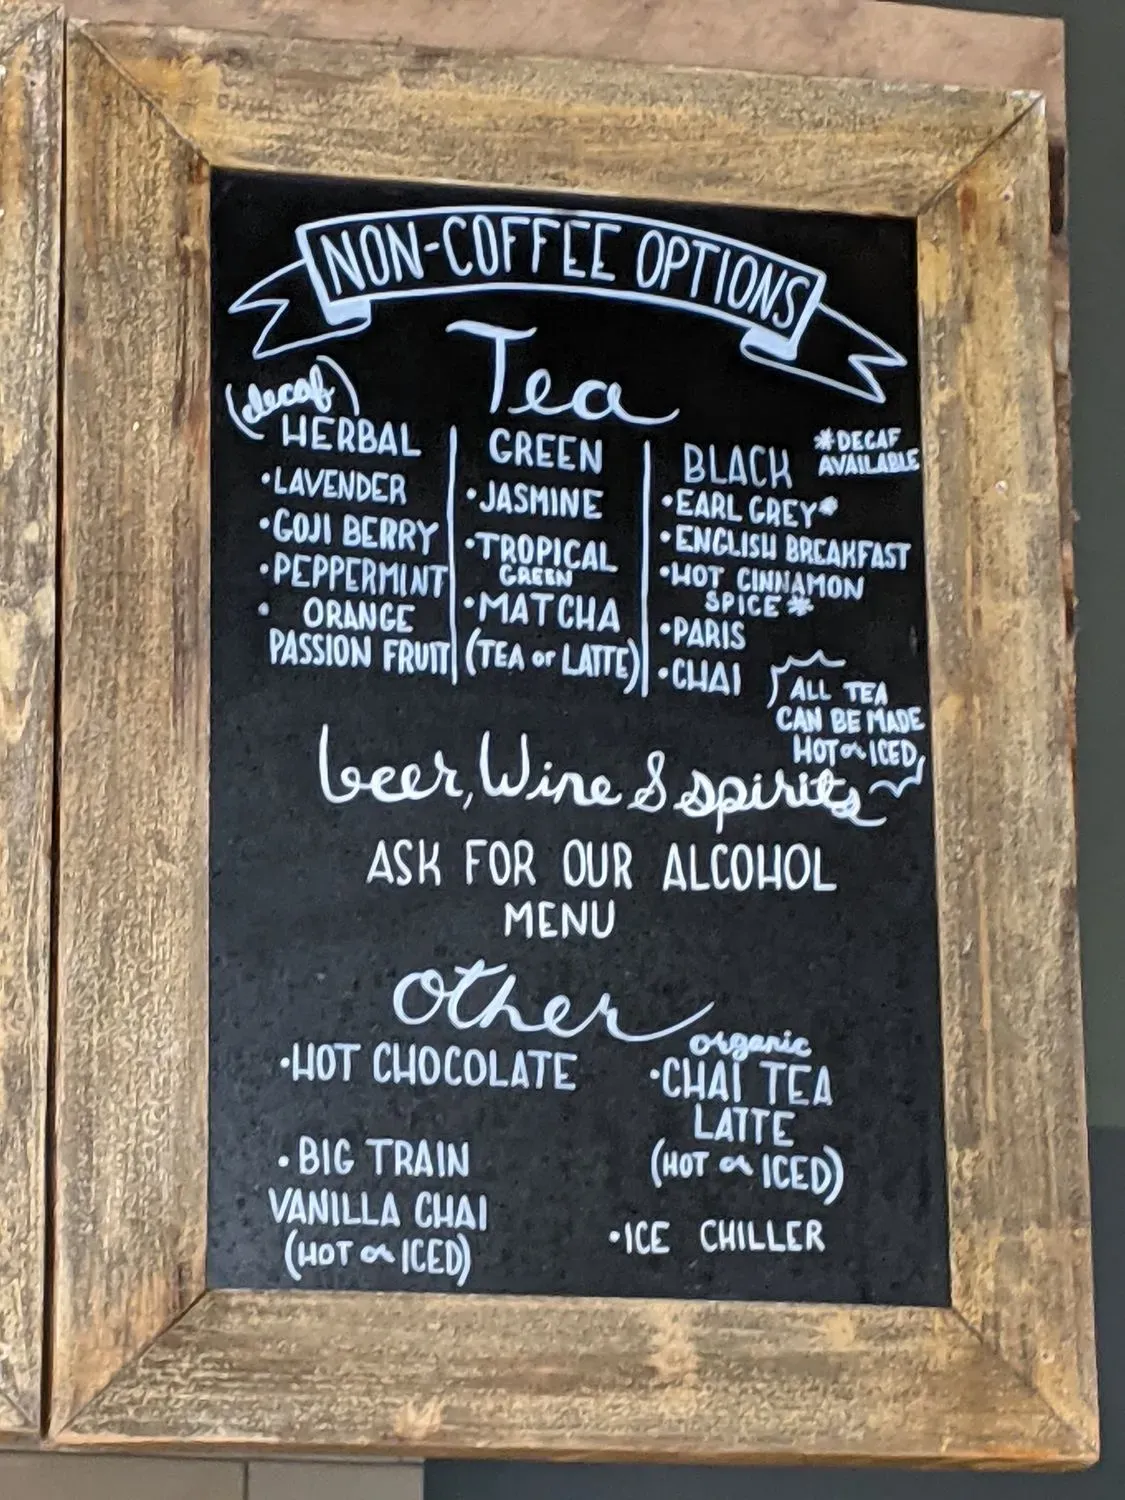 NON-COFFEE OPTIONS
Tea
(decaf)
HERBAL
•LAVENDER
•GOJI BERRY
•PEPPERMINT
• ORANGE
PASSION FRUIT
GREEN
•JASMINE
•TROPICAL
GREEN
•MATCHA
(TEA or LATTE)
BLACK
*DECAF
AVAILABLE
•EARL GREY*
•ENGLISH BREAKFAST
•HOT CINNAMON
SPICE*
•PARIS
•CHAI
ALL TEA
CAN BE MADE
HOT or ICED
beer, Wine & spirits
ASK FOR OUR ALCOHOL
MENU
Other
•HOT CHOCOLATE
•BIG TRAIN
VANILLA CHAI
(HOT or ICED)
organic
•CHAI TEA
LATTE
(HOT or ICED)
•ICE CHILLER